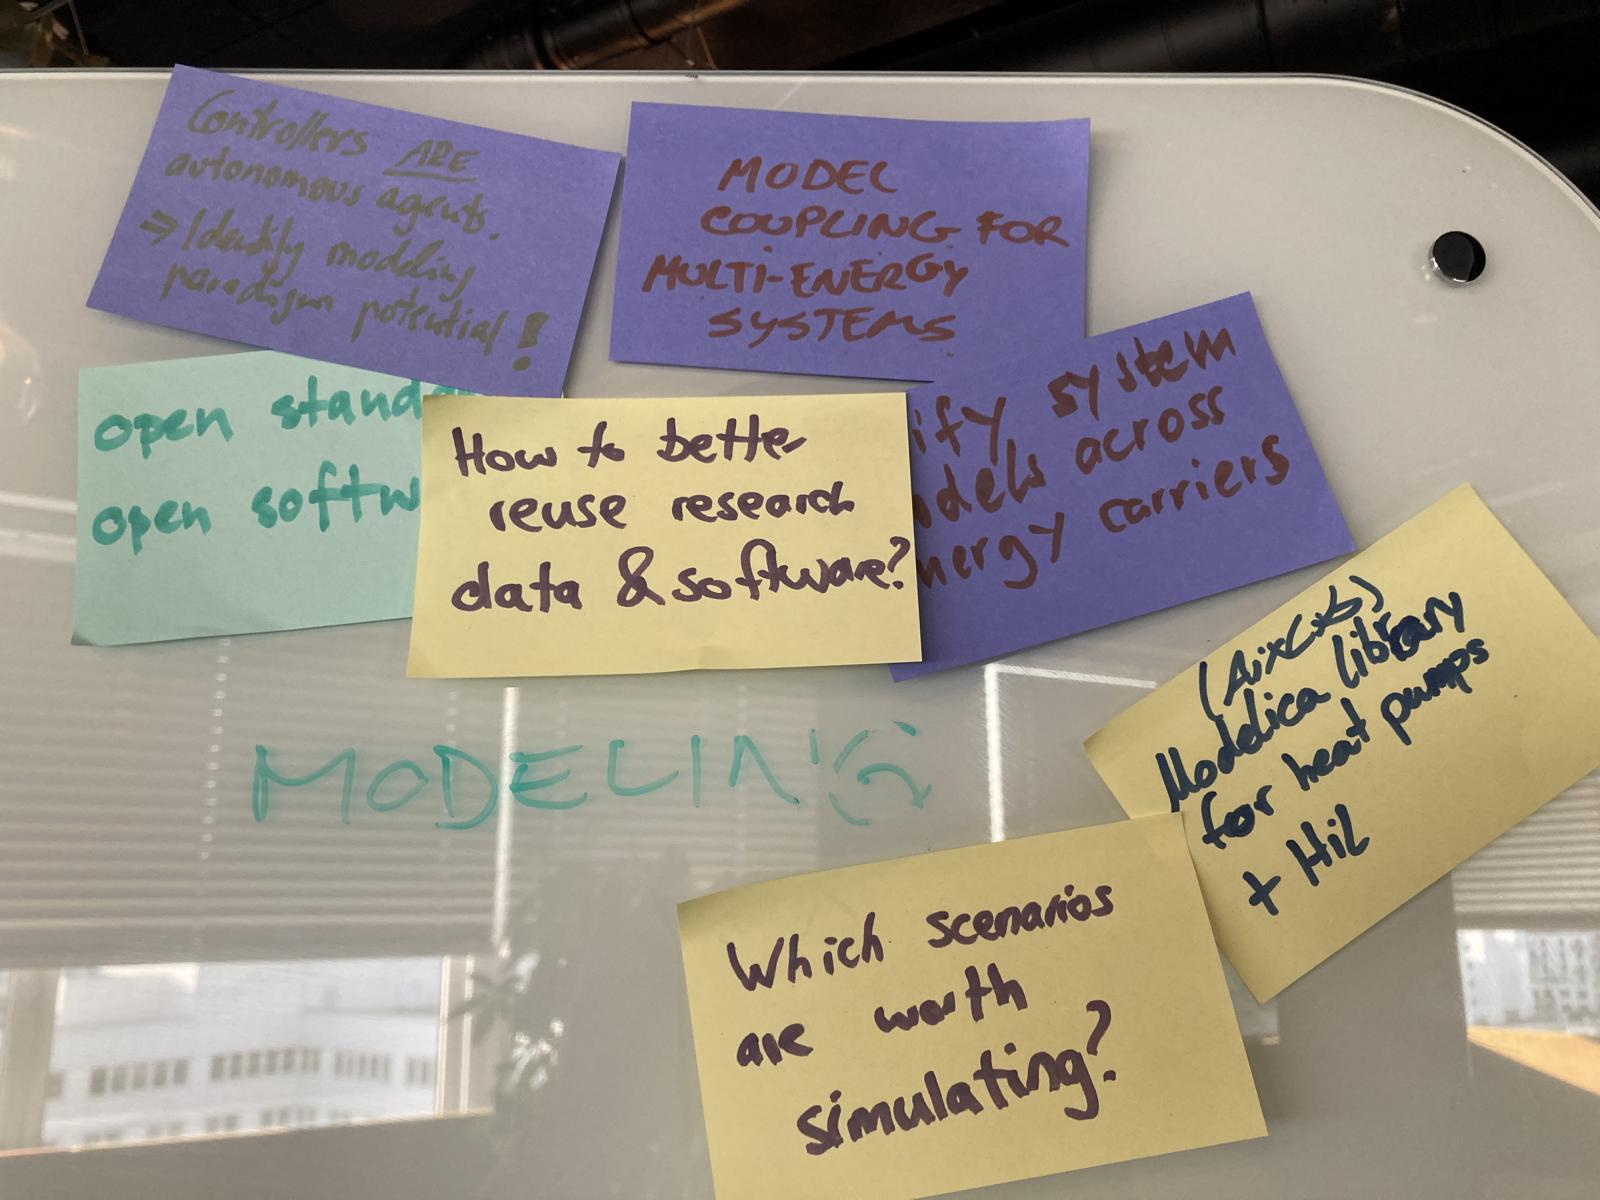 Controllers ARE
autonomous agents.
⇒ Identify modeling
paradigm potential!
MODEL
COUPLING FOR
MULTI-ENERGY
SYSTEMS
open standa
open softw
How to better
reuse research
data & software?
ify system
dels across
nergy carriers
(AixLib)
Modelica library
for heat pumps
+ HiL
MODELING
Which scenarios
are worth
simulating?